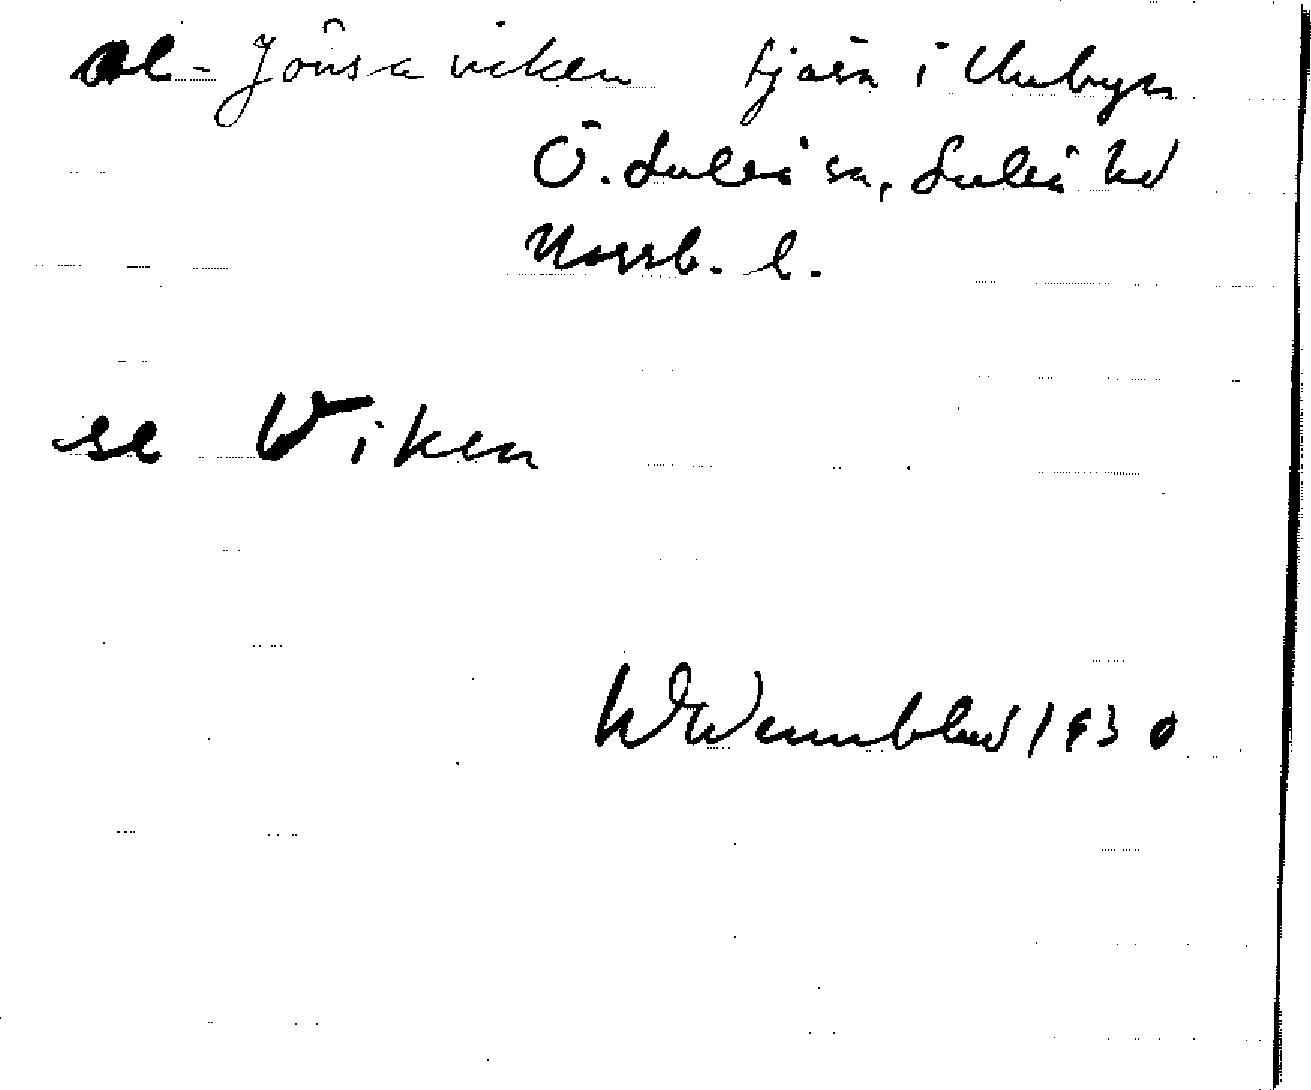 al- Jönsaviken tjärn i Unbyn
Ö. Luleå sn, Luleå hd
Norrb. l.
se Viken
W Wennblad 1930